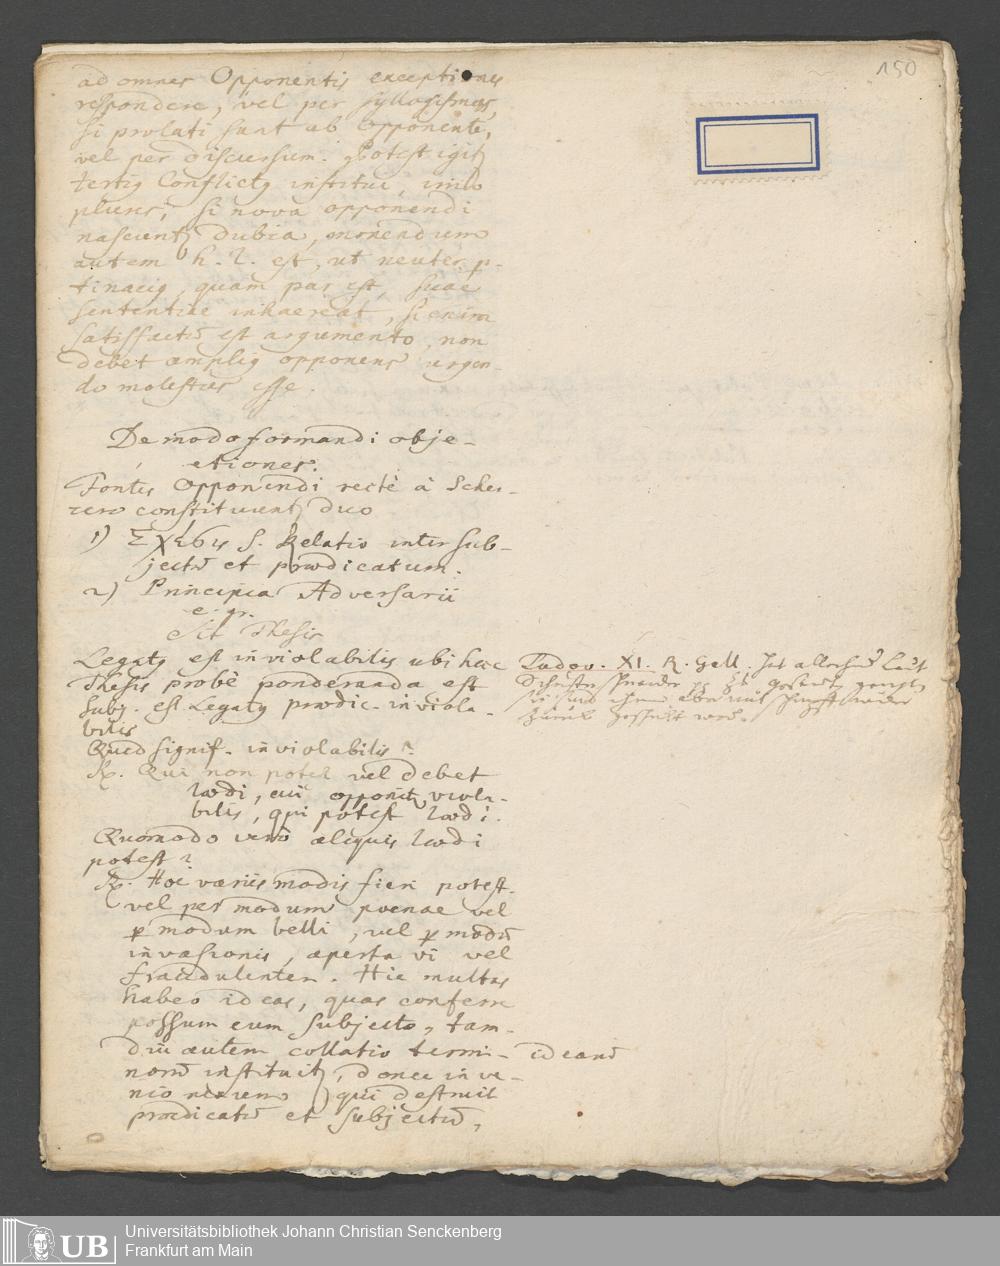 150
ad omnes Opponentis exceptiones
respondere, vel per syllogismos,
si prolati sunt ab opponente,
vel per discursum. Potest igitꝫ
tertiꝰ Conflictꝰ institui, imo
plures, si nova opponendi
nascuntꝫ dubia, monendum
autem h. l. est, ut neuter p-
tinaciꝰ, quam par est, suae
sententiae inhaereat, si enim
satisfactũ est argumento, non
debet ampliꝰ opponens urgen-
do molestus esse.
De modo formandi obje-
ctiones.
Fontes Opponendi rectè à Scher-
zero constituuntꝫ duo
1) Σχέσις s. Relatio inter sub-
jectũ et praedicatum.
2) Principia Adversarii
e. gr.
Sit Thesis
Legatꝰ est inviolabilis ubi haec
Thesis probè ponderanda est
Subj. est Legatꝰ praedic. inviola-
bilis
Quid signif. inviolabilis?
R. Qui non potest vel debet
laedi, cui opponitꝫ viola-
bilis, qui potest laedi.
Quomodo verò aliquis laedi
potest?
R. Hoc variis modis fieri potest.
vel per modum poenae vel
p modum belli, vel p modũ
invasionis, aperta vi vel
fraudulenter. Hic multas
habeo ideas, quas conferre
possum cum subjecto, tam-
diu autem collatio termi-
norũ instituitꝫ, donec inve-
nio nexum qui destruit
praedicatũ et subjectũ,
Ludov. XI. R. Gall. hat
idearũ
Universitätsbibliothek Johann Christian Senckenberg
Frankfurt am Main
UB